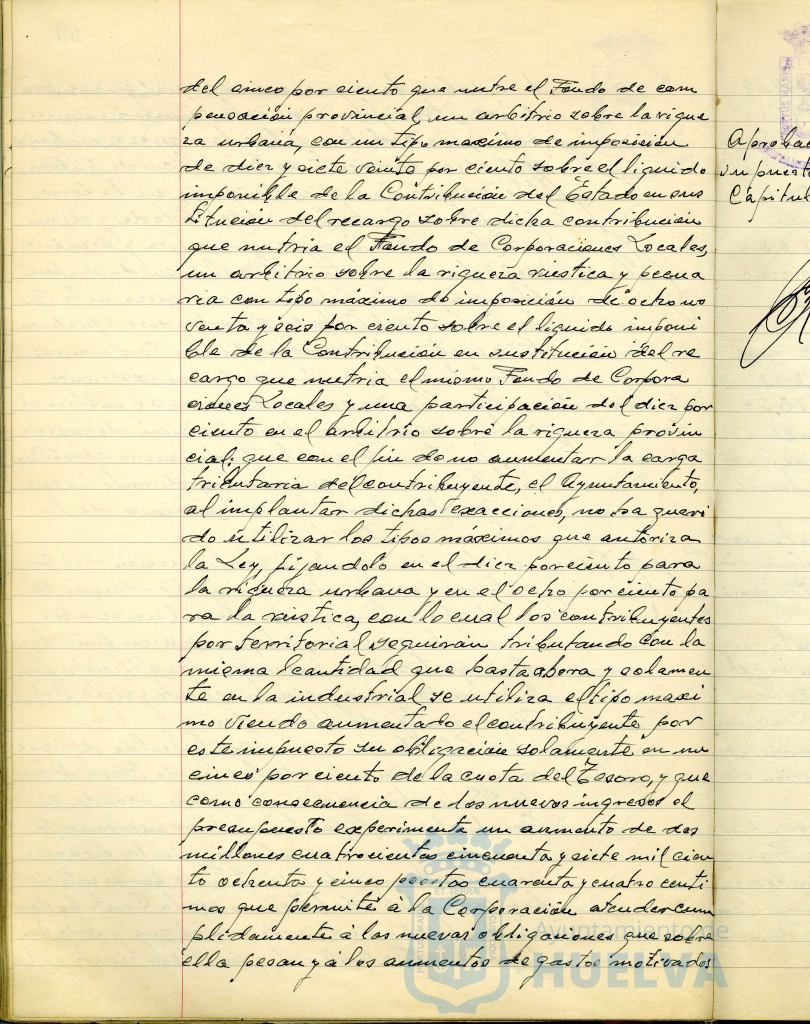 del cinco por ciento que nutre el Fondo de com
pensación provincial, un arbitrio sobre la rique
za urbana, con un tipo maximo de imposición
de diez y siete veinte por ciento sobre el liquido
imponible de la Contribución del Estado en sus
titución del recargo sobre dicha contribución
que nutria el Fondo de Corporaciones Locales,
un arbitrio sobre la riqueza rústica y pecua
ria con tipo máximo de imposición de ocho no
venta y seis por ciento sobre el liquido imponi
ble de la Contribución en sustitución del re
cargo que nutria el mismo Fondo de Corpora
ciones Locales y una participación del diez por
ciento en el arbitrio sobre la riqueza provin
cial; que con el fin de no aumentar la carga
tributaria del contribuyente, el Ayuntamiento,
al implantar dichas exacciones, no ha queri
do utilizar los tipos máximos que autoriza
la Ley, fijandolo en el diez por ciento para
la riqueza urbana y en el ocho por ciento pa
ra la rústica, con lo cual los contribuyentes
por territorial seguirán tributando con la
misma cantidad que hasta ahora y solamen
te en la industrial se utiliza el tipo maxi
mo viendo aumentado el contribuyente por
este impuesto su obligación solamente en un
cinco por ciento de la cuota del Tesoro, y que
como consecuencia de los nuevos ingresos el
presupuesto experimenta un aumento de dos
millones cuatrocientas cincuenta y siete mil cien
to ochenta y cinco pesetas cuarenta y cuatro centi
mos que permite á la Corporación atender cum
plidamente á las nuevas obligaciones que sobre
ella pesan y á los aumentos de gastos motivados
Ayuntamiento de
HUELVA